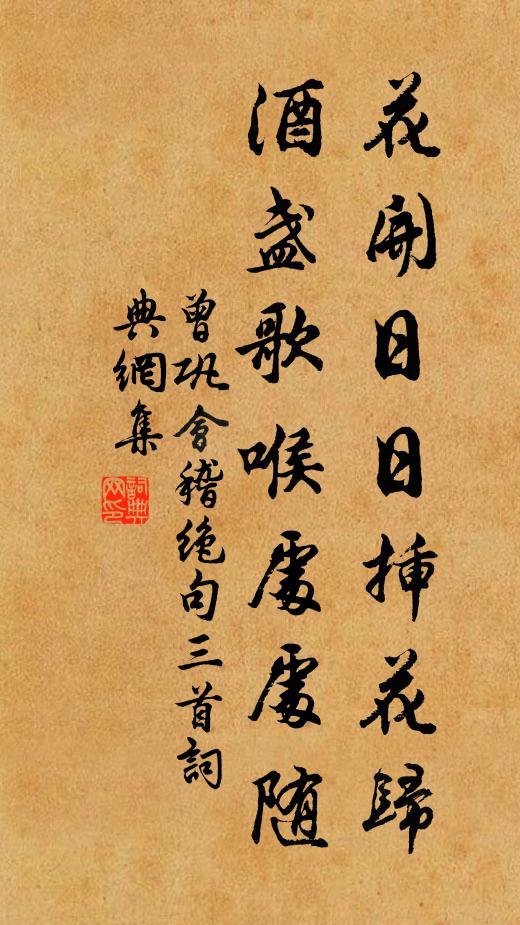 花開日日揷花歸
酒盞歌喉處處随
曾巩會稽絶句三首詞
典網集
詞典
网印